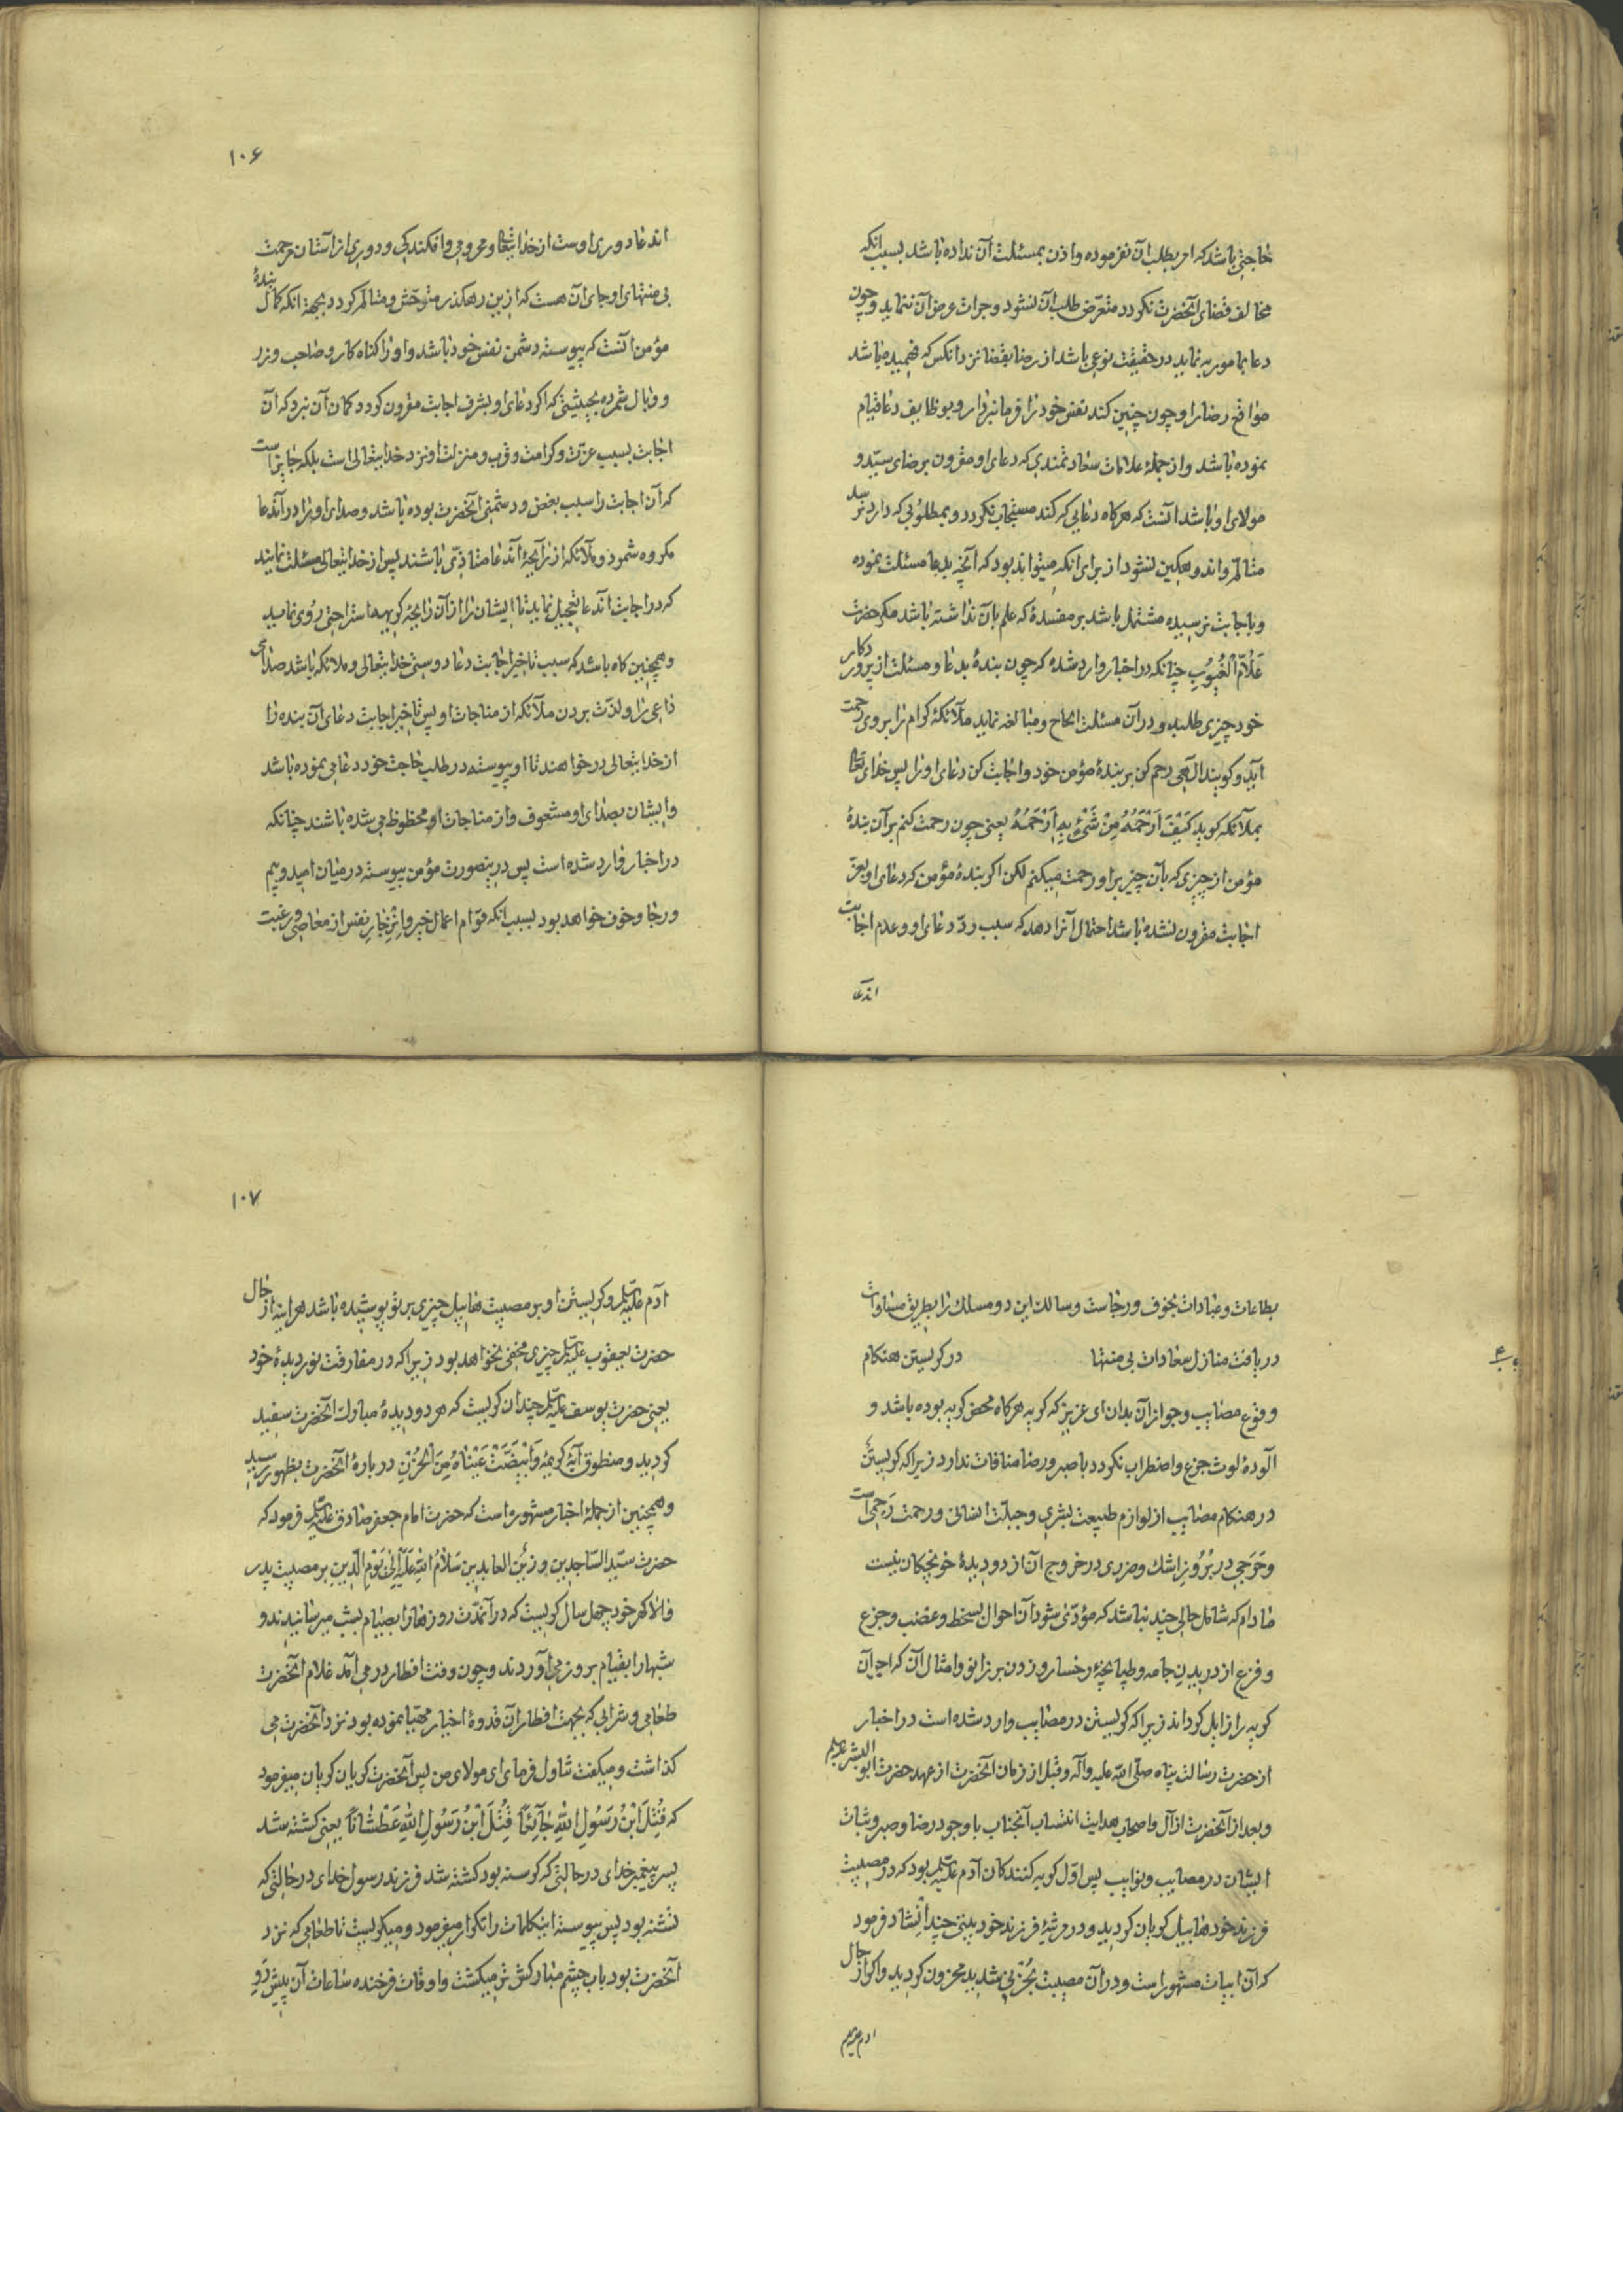 حاجتی باشد که امر بطلب آن نفرموده و اذن بمسئلت آن نداده باشد بسبب آنکه
مخالف قضای آنحضرت نکردد متعرّض طلب آن نشود و جرات عرض آن ننماید و چون
دعا بمامور به نماید در حقیقت نوعی باشد از رضا بقضا نزد انکس که فهمیده باشد
مواقع رضا را و چون چنین کند نفس خود را فرمانبردار و بوظایف دعا قیام
نموده باشد و از جملهٔ علامات سعادتمندی که دعای او مقرون برضای سیّد و
مولای او باشد آنست که هرکاه دعایی که کند مستجاب نکردد و بمطلوبی که دارد نرسد
متالم و اندوهکین نشود از برای انکه میتواند بود که آنچه بدعا مسئلت نموده
و باجابت نرسیده مشتمل باشد بر مفسدهٔ که علم بآن نداشته باشد مکر حضرت
عَلّامُ الْغُیُوبِ چنانکه در اخبار وارد شده که چون بندهٔ بدعا و مسئلت از پروردکار
خود چیزی طلبد و در آن مسئلت الحاح و مبالغه نماید ملآئکهٔ کرام را بر وی رحمت
آید و کویند الهی رحم کن بر بندهٔ مؤمن خود و اجابت کن دعای او را پس خدای تعالی
بملآئکه کوید کَیْفَ اَرْحَمُهُ مِنْ شَیْءٍ بِهِ اَرْحَمُهُ یعنی چون رحمت کنم بر آن بندهٔ
مؤمن از چیزی که بآن چیز بر او رحمت میکنم لکن اکر بندهٔ مؤمن که دعای او بعزّ
اجابت مقرون نشده باشد احتمال آنرا دهد که سبب ردّ دعای او و عدم اجابت
اندعا
۱۰۶
اندعا دوری اوست از خدایتعالی و محرومی و افکندکی و دوری از آستان مرحمت
بی منتهای او جای آن هست که ازین رهکذر متوحّش و متالم کردد بجهة انکه کمال بندهٔ
مؤمن آنست که پیوسته دشمن نفس خود باشد و او را کناه کار و صاحب وزر
و وبال شمرده بحیثیتی که اکر دعای او بشرف اجابت مقرون کردد کمان آن نبرد که آن
اجابت بسبب عزّت و کرامت و قرب و منزلت او نزد خدایتعالی است بلکه جایز است
که آن اجابت را سبب بغض و دشمنی آنحضرت بوده باشد و صدای او را در آندعا
مکروه شمرد و ملآئکه از رآیحهٔ آندعا متاذّی باشند پس از خدایتعالی مسئلت نمایند
که در اجابت آندعا تعجیل نماید تا ایشان را از آن رایحهٔ کریهه استراحتی روی نماید
و همچنین کاه باشد که سبب تاخیر اجابت دعا دوستی خدایتعالی و ملائکه باشد صدای
داعی را و لذّت بردن ملآئکه از مناجات او پس تاخیر اجابت دعای آن بنده را
از خدایتعالی درخواهند تا او پیوسته در طلب حاجت خود دعا می نموده باشد
و ایشان بصدای او مشعوف و از مناجات او محظوظ می شده باشند چنانکه
در اخبار وارد شده است پس درینصورت مؤمن پیوسته در میان امید و بیم
و رجا و خوف خواهد بود بسبب انکه قوام اعمال خیر و انزجار نفس از معاصی و رغبت
بطاعات و عبادات بخوف و رجاست و سالک این دو مسلک را بطریق مساوات
دریافت منازل سعادات بی منتها در کریستن هنکام
وقوع مصایب و جواز آن بدان ای عزیز که کریه هرکاه محض کریه بوده باشد و
آلودهٔ لوث جزع و اضطراب نکردد با صبر و رضا منافات ندارد زیرا که کریستن
در هنکام مصایب از لوازم طبیعت بشری و جبلّت انسانی و رحمت رَحِمی است
و حَرَجی در بُرُوز اشک و ضرری در خروج آن از دو دیدهٔ خونچکان نیست
مادام که شامل حالی چند نباشد که مؤدّی شود آن احوال بسخط و غضب و جزع
و فزع از دریدن جامه و طپانچهٔ رخسار و زدن بر زانو و امثال آن که اجر آن
کریه را زایل کرداند زیرا که کریستن در مصایب وارد شده است در اخبار
از حضرت رسالت پناه صلّی الله علیه و آله و قبل از زمان آنحضرت از عهد حضرت ابوالبشر
و بعد از آنحضرت از آل و اصحاب هدایت انتساب آنجناب با وجود رضا و صبر و ثبات
ایشان در مصایب و نوایب پس اوّل کریه کنندکان آدم علیه السلام بود که در مصیبت
فرزند خود هابیل کریان کردید و در مرثیهٔ فرزند خود بیتی چند انشاد فرمود
که آن ابیات مشهور است و در آن مصیبت بحُزنی شدید محزون کردید و اکر از حال
ادم
۱۰۷
آدم علیه السلام و کریستن او بر مصیبت هابیل چیزی بر تو پوشیده باشد هراینه از حال
حضرت یعقوب علیه السلام چیزی مخفی نخواهد بود زیرا که در مفارقت نور دیدهٔ خود
یعنی حضرت یوسف علیه السلام چندان کریست که هر دو دیدهٔ مبارک آنحضرت سفید
کردید و منطوق آیهٔ کریمهٔ وَابْیَضَّتْ عَیْنَاهُ مِنَ الْحُزْنِ دربارهٔ آنحضرت بظهور رسید
و همچنین از جملهٔ اخبار مشهوره است که حضرت امام جعفر صادق علیه السلام فرمود که
حضرت سیّد السّاجدین و زَیْنَ العابدین سَلامُ اللهِ عَلَیْهِ اِلی یَوْمِ الدّینِ بر مصیبت پدر
والا کهر خود چهل سال کریست که در آنمدّت روزها را بصیام بشب میرسانیدند و
شبها را بقیام بروز می آوردند و چون وقت افطار درمی آمد غلام آنحضرت
طعامی و شرابی که بجهت افطار آن قدوهٔ اخیار مهیّا نموده بود نزد آنحضرت می
کذاشت و میکفت تناول فرمای ای مولای من پس آنحضرت کریان کریان میفرمود
که قُتِلَ ابْنُ رَسُولِ اللهِ جآئِعًا قُتِلَ ابْنُ رَسُولِ اللهِ عَطْشَانًا یعنی کشته شد
پسر پیغمبر خدای در حالتی که کرسنه بود کشته شد فرزند رسول خدای در حالتی که
تشنه بود پس پیوسته اینکلمات را تکرار میفرمود و میکریست تا طعامی که نزد
آنحضرت بود باب چشم مبارکش تر میکشت و اوقات فرخنده ساعات آن پیش رَوِ